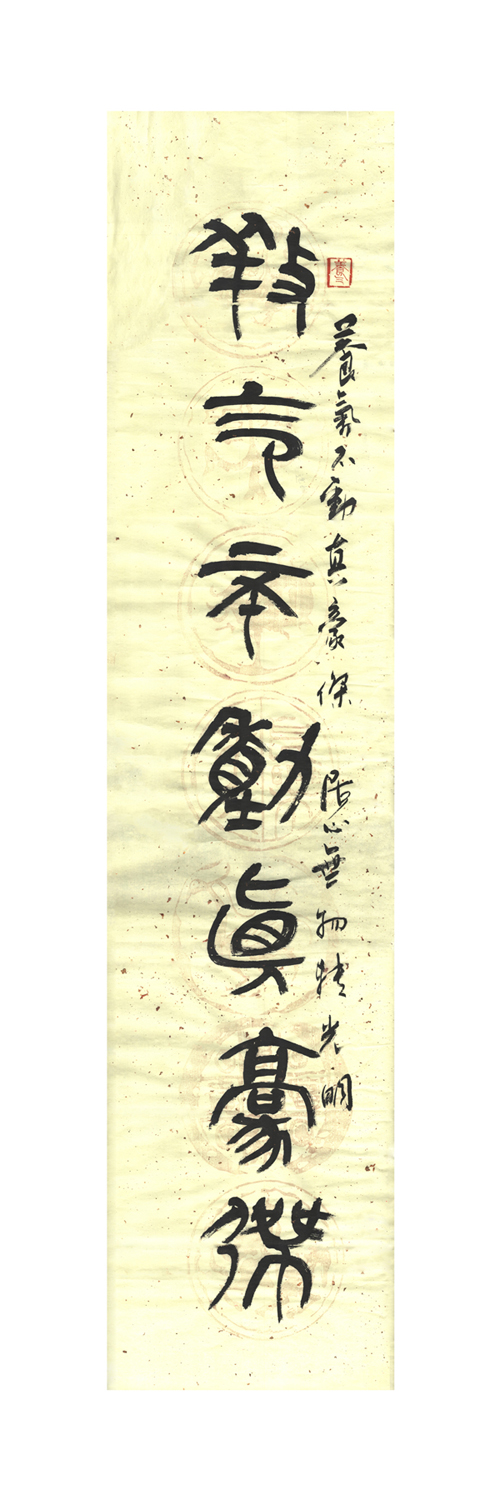 養氣不動真豪傑 居心無物轉光明
養气不動眞豪傑